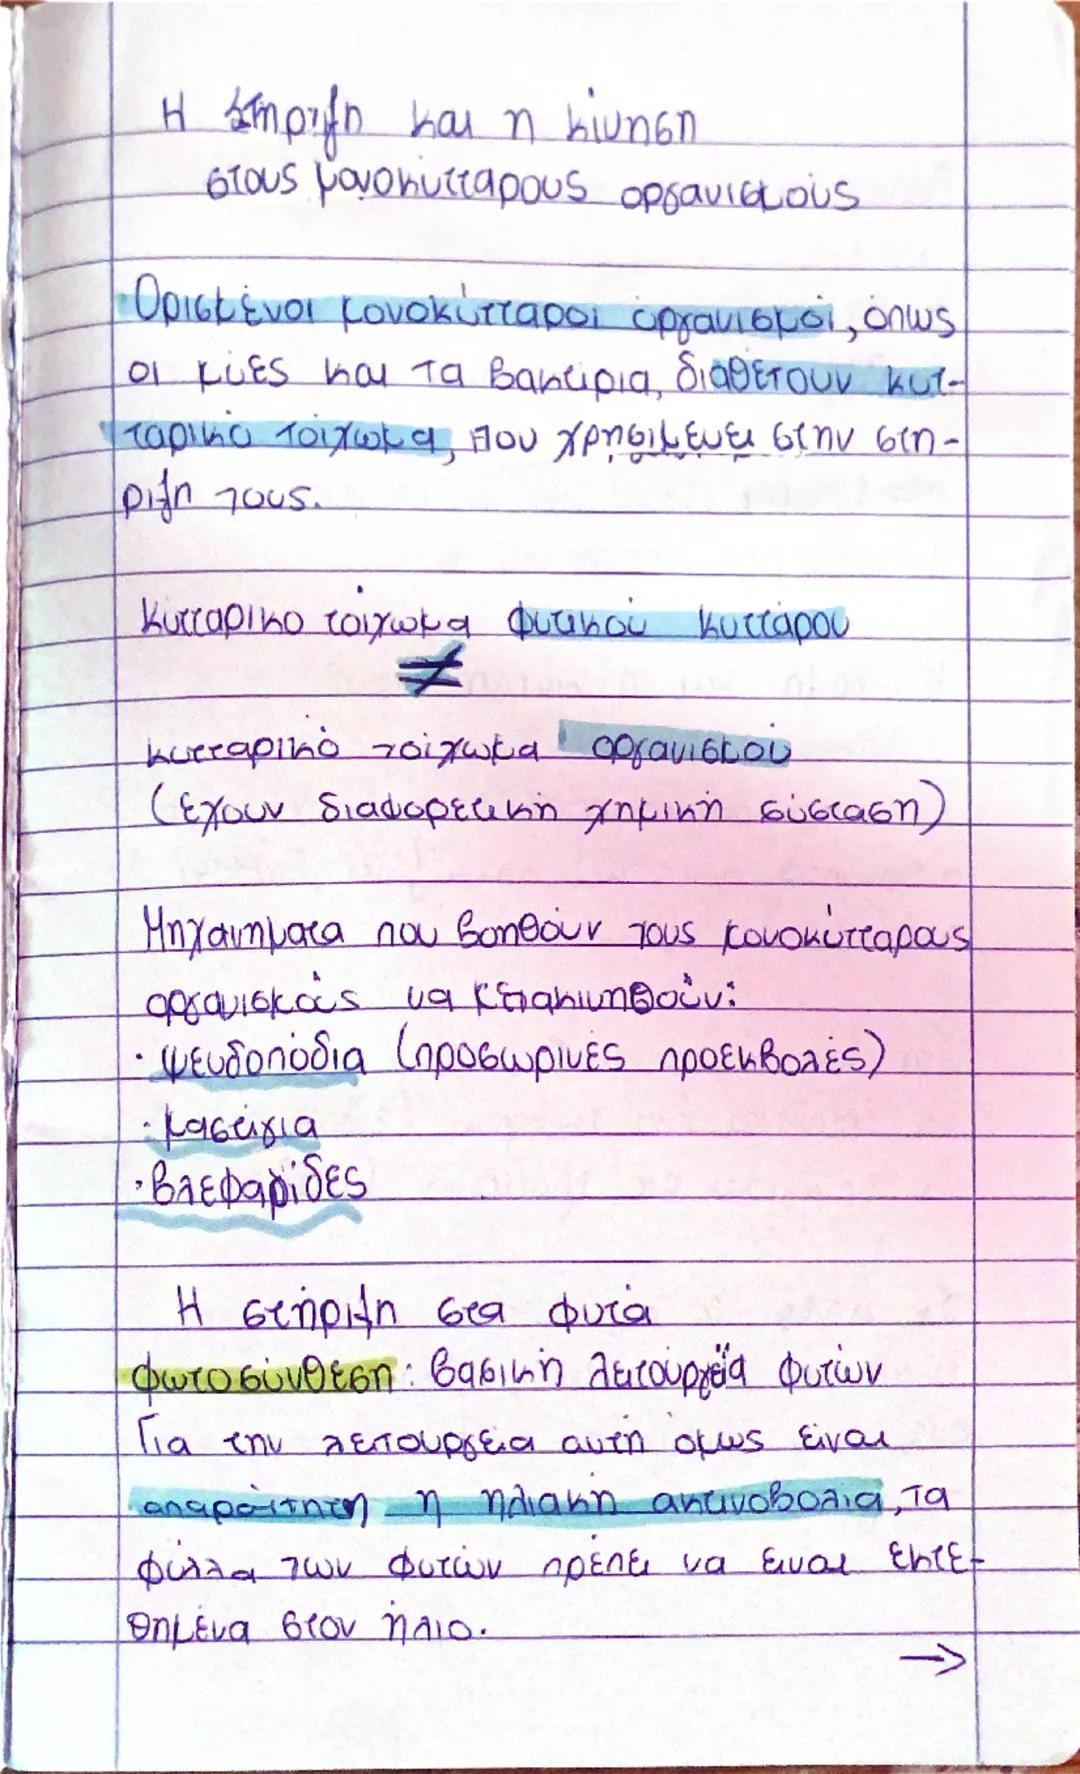 Η στήριξη και η κίνηση
στους μονοκύτταρους οργανισμούς
Ορισμένοι μονοκύτταροι οργανισμοί, όπως
οι μύες και τα βακτήρια, διαθέτουν κυτ-
ταρικό τοίχωμα, που χρησιμεύει στην στη-
ριξη τους.
Κυτταρικο τοίχωμα φυτικού κυττάρου
≠
κυτταρικό τοίχωμα οργανισμού
(έχουν διαφορετική χημική σύσταση)
Μηχανήματα που βοηθούν τους μονοκύτταρους
οργανισμούς να μετακινηθούν:
· ψευδοπόδια (προσωρινές προεκβολές)
· μαστίγια
· βλεφαρίδες
Η στήριξη στα φυτά
φωτοσύνθεση: βασική λειτουργεία φυτών
Για την λειτουργεία αυτή όμως είναι
απαραίτητη η ηλιακή ακτινοβολία, τα
φύλλα των φυτών πρέπει να είναι εκτε-
θημένα στον ήλιο.
→